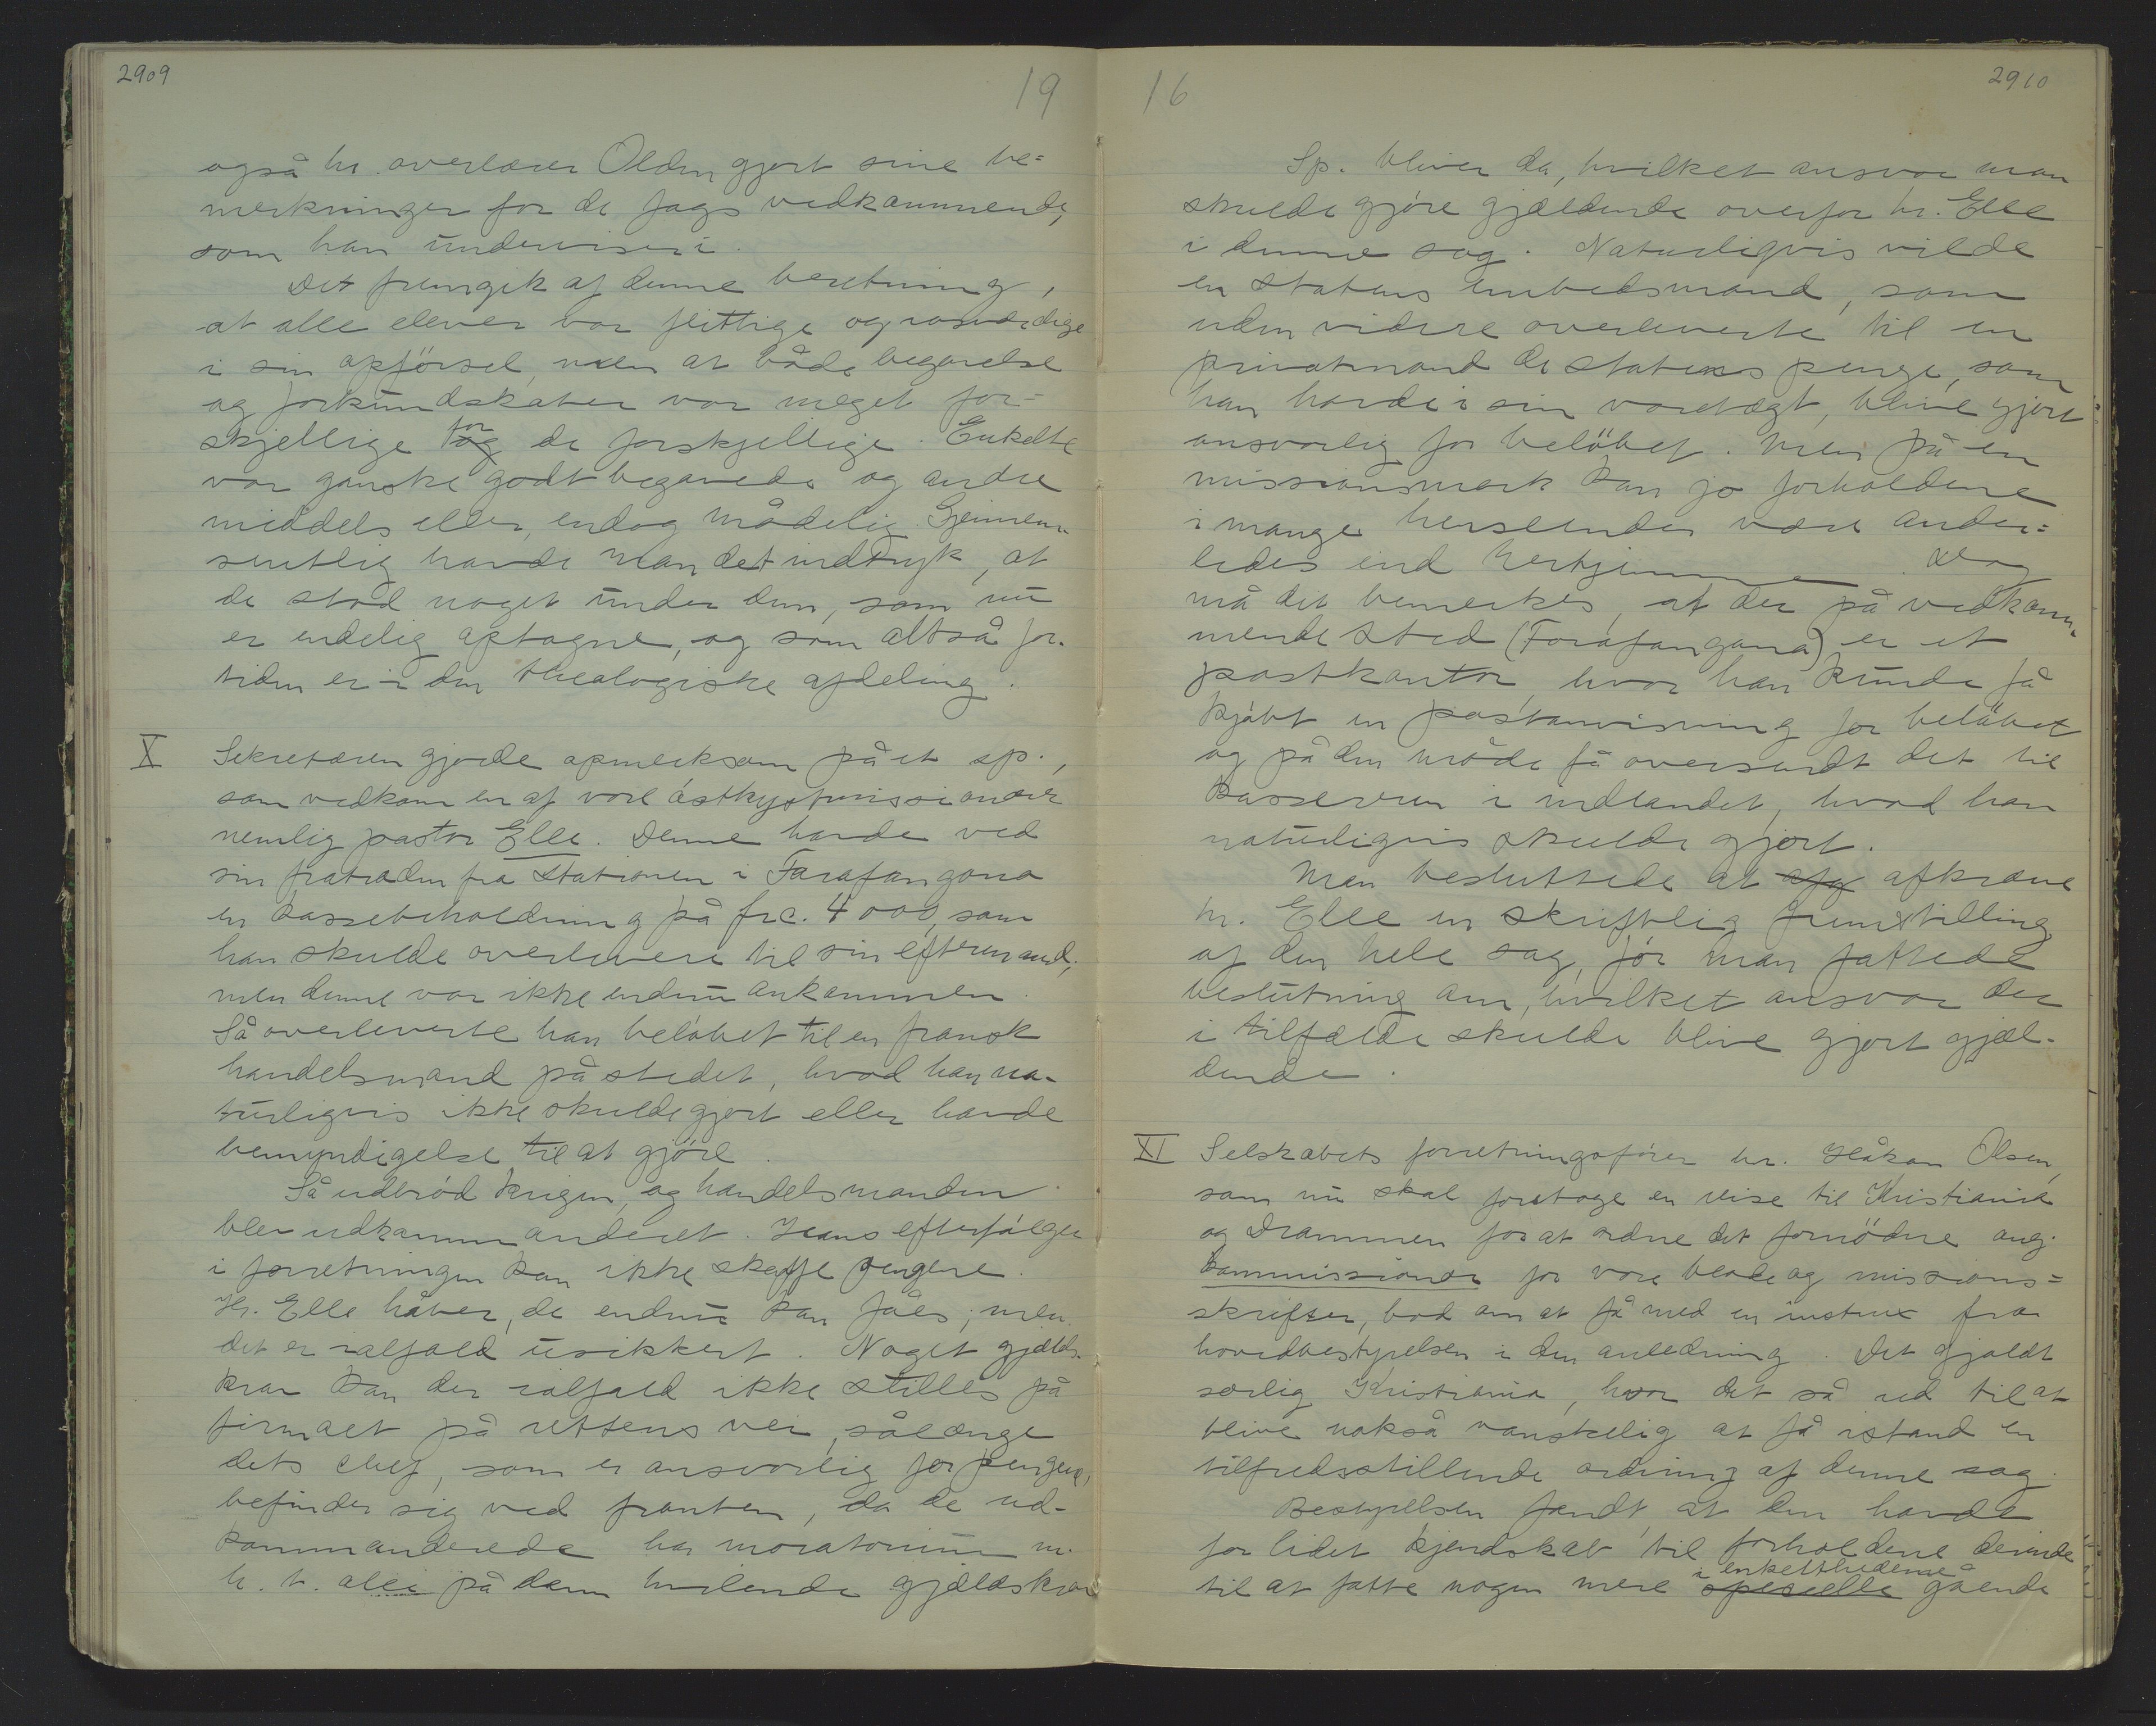 2909
19
også hr. overlærer Olden gjort sine be=
merkninger for de fags vedkommende,
som han underviser i.
Det fremgik af denne beretning,
at alle elever var flittige og rosværdige
i sin opförsel, men at både begavelse
og forkundskaber var meget for=
skjellige for de forskjellige. Enkelte
var ganske godt begavede og andre
middels eller endog mådelig. Gjennem-
snitlig havde man det indtryk, at
de stod noget under dem, som nu
er endelig optagne, og som altså for
tiden er i den theologiske afdeling.
X Sekretæren gjorde opmerksom på et sp.,
som vedkom en af vore østkystmissionærer
nemlig pastor Elle. Denne havde ved
sin fratræden fra Stationen i Farafangana
en kassebeholdning på frc. 4000, som
han skulde overlevere til sin eftermand;
men denne var ikke endnu ankommen.
Så overleverte han beløbet til en fransk
handelsmand på stedet, hvad han na-
turligvis ikke skulde gjort eller havde
bemyndigelse til at gjöre.
Så udbröd krigen, og handelsmanden
blev udkommanderet. Hans efterfölger
i forretningen kan ikke skaffe pengene.
Hr. Elle håber, de endnu kan fåes; men
det er ialfald usikkert. Noget gjælds-
krav kan der ialfald ikke stilles på
firmaet på rettens vei, sålænge
dets chef, som er ansvarlig for pengene,
befinder sig ved fronten, da de ud-
kommanderede har moratorium m.
h. t. alle på dem hvilende gjældskrav
16
2910
Sp. bliver da, hvilket ansvar man
skulde gjöre gjældende overfor hr. Elle
i denne sag. Naturligvis vilde
en Statens embedsmand, som
uden videre overleverte til en
privatmand de statens penge, som
han havde i sin varetægt, blive gjort
ansvarlig for belöbet. Men på en
missionsmark kan jo forholdene
i mange henseender være ander=
ledes end herhjemme. Dog
må det bemerkes, at der på vedkom-
mende Sted (Farafangana) er et
postkontor, hvor han kunde få
kjöbt en postanvisning for belöbet
og på den måde få oversendt det til
kassereren i indlandet, hvad han
naturligvis skulde gjort.
Man besluttede at afg afkræve
hr. Elle en skriftlig fremstilling
af den hele sag, för man fattede
beslutning om, hvilket ansvar der
i tilfælde skulde blive gjort gjæl-
dende.
XI Selskabets forretningsförer hr. Håkon Olsen,
som nu skal foretage en reise til Kristiania
og Drammen for at ordne det fornödne ang.
kommissionær for vore blade og missions=
skrifter, bad om at få med en instrux fra
hovedbestyrelsen i den anledning. Det gjaldt
særlig Kristiania, hvor det så ud til at
blive nokså vanskelig at få istand en
tilfredsstillende ordning af denne sag.
Bestyrelsen fandt, at den havde
for lidet kjendskab til forholdene derinde
til at fatte nogen mere specielle i enkelthederne gående